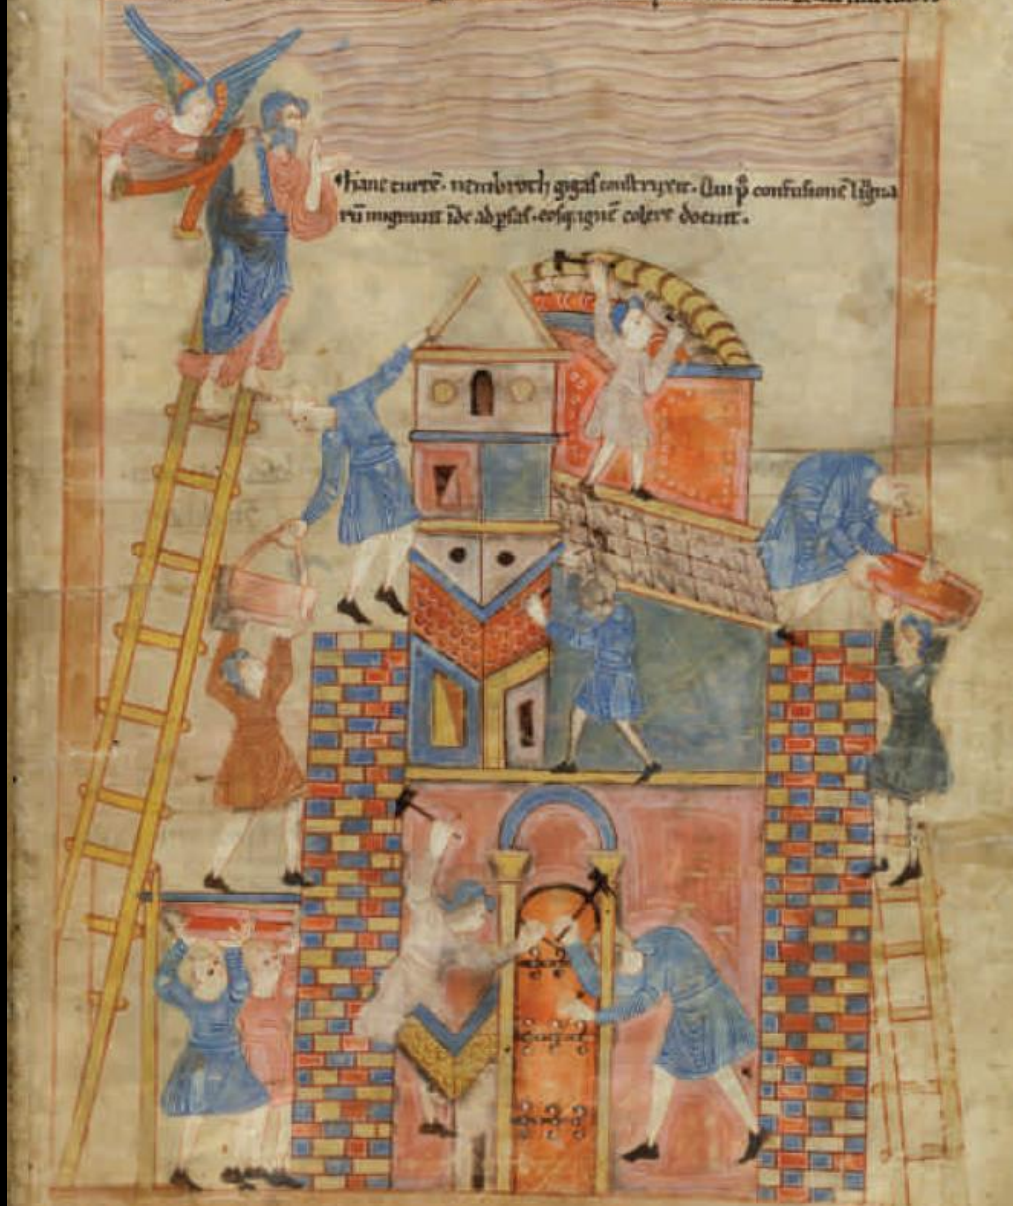 hanc turrē. nembroth gigas construxit. Qui p̄ confusionē līgua
rū migrauit īde ad ꝑsas. eosq; ignē colere docuit.